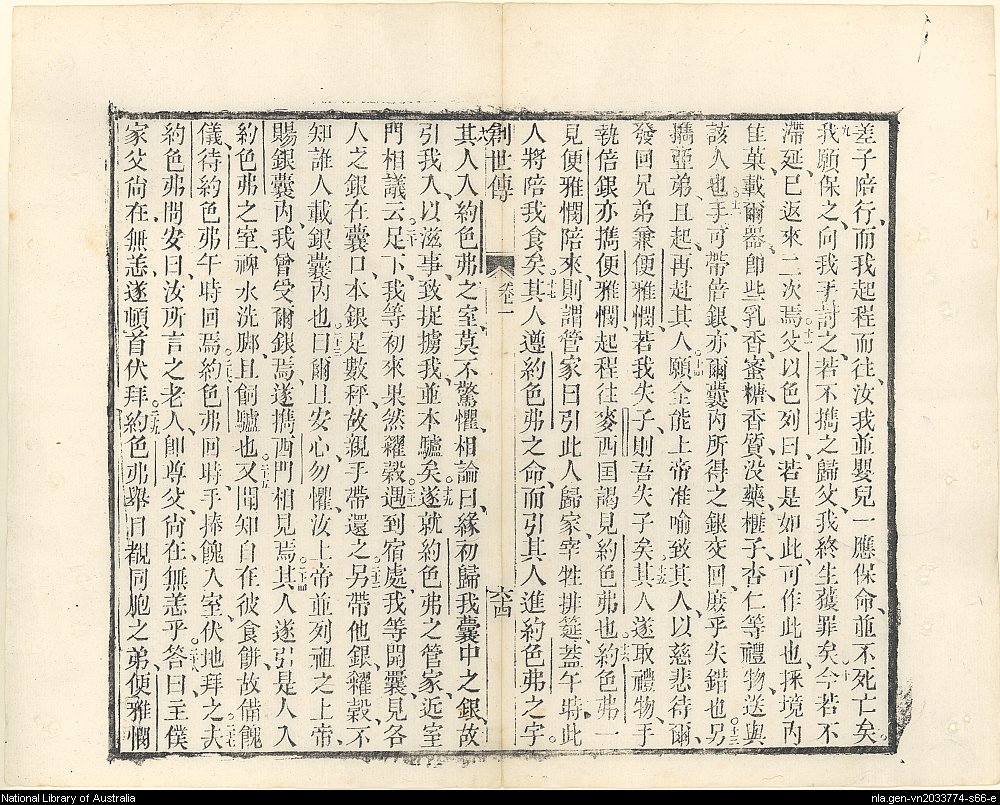 差子陪行、而我起程而往、汝我並嬰兒一應保命、並不死亡矣。
九我願保之、向我手討之、若不攜之歸父、我終生獲罪矣。十今若不
滯延、已返來二次焉。十一父以色列曰、若是如此、可作此也、採境內
佳菓、載爾器、卽些乳香、蜜糖、香質、沒藥、榧子、杏仁等禮物、送與
該人也。十二手可帶倍銀、亦爾囊內所得之銀交回、庶乎失錯也。十三另
攜亞弟、且起、再赴其人。十四願全能上帝准喻、致其人、以慈悲待爾、
發回兄弟兼便雅憫、若我失子、則吾失子矣。十五其人遂取禮物、手
執倍銀、亦攜便雅憫、起程往麥西國、謁見約色弗也。十六約色弗一
見便雅憫陪來、則謂管家曰、引此人歸家、宰牲排筵、蓋午時、此
人將陪我食矣。十七其人遵約色弗之命、而引其人進約色弗之宇。
創世傳 卷一 六四
其人入約色弗之室、莫不驚懼、相論曰、緣初歸我囊中之銀、故
引我入、以滋事、致捉擄我、並本驢矣。十九遂就約色弗之管家、近室
門相議云。二十足下、我等初來、果然糴穀。二十一遇到宿處、我等開囊、見各
人之銀在囊口、本銀足數秤、故親手帶還之。二十二另帶他銀糴穀、不
知誰人載銀囊內也。二十三曰、爾且安心勿懼、汝上帝並列祖之上帝、
賜銀囊內、我曾受爾銀焉、遂攜西門相見焉。二十四其人遂引是人入
約色弗之室、裨水洗脚、且飼驢也。二十五又聞知自在彼食餅、故備餽
儀、待約色弗午時回焉。二十六約色弗回時、手捧餽入室、伏地拜之。二十七夫
約色弗問安曰、汝所言之老人、卽尊父、尙在、無恙乎。二十八答曰、主僕
家父尙在、無恙、遂頓首伏拜。二十九約色弗舉目、覩同胞之弟、便雅憫
National Library of Australia
nla.gen-vn2033774-s66-e